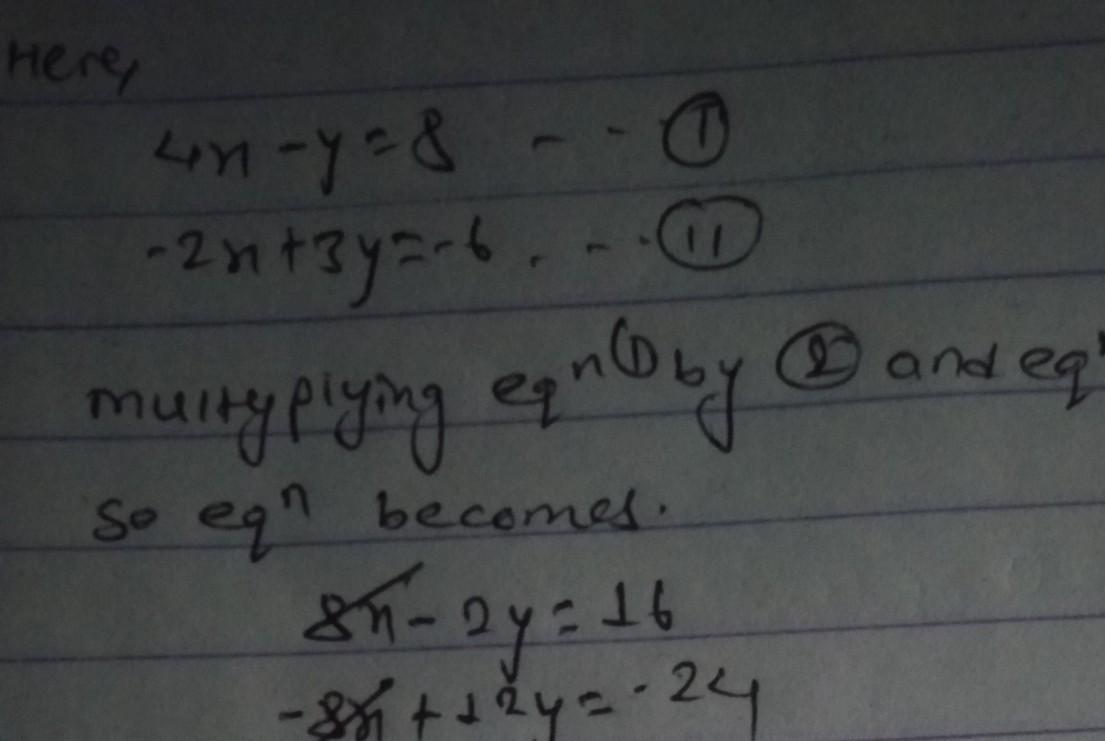 Here,
4x - y = 8 - - - ①
-2x + 3y = -6 . - - - ⑪
multyplying eqⁿ ① by ② and eqⁿ
so eqⁿ becomes.
8x - 2y = 16
-8x + 12y = -24